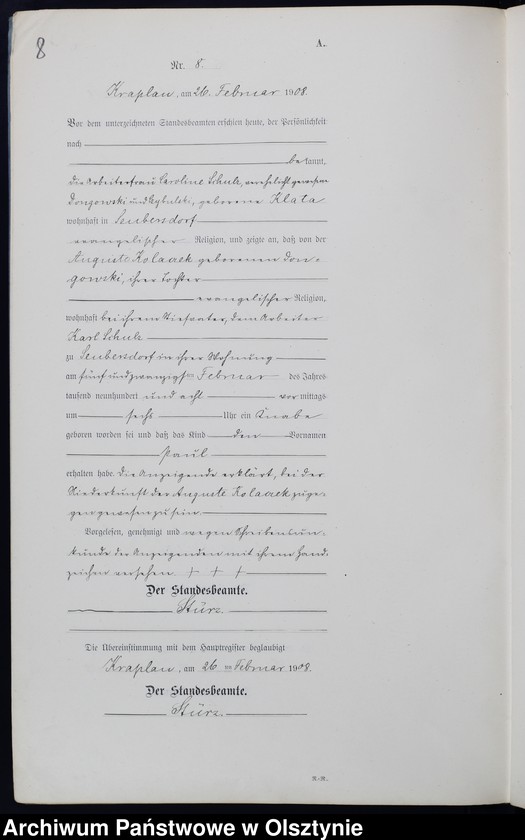 8
A.
Nr. 8.
Kraplau, am 26. Februar 1908.
Vor dem unterzeichneten Standesbeamten erschien heute, der Persönlichkeit
nach
bekannt,
die Arbeiterfrau Caroline Schulz, verehelicht gewesene
Dongowski und Cybulski, geborene Klata
wohnhaft in Seubersdorf
evangelischer Religion, und zeigte an, daß von der
Auguste Kolassek geborenen Don-
gowski, ihrer Tochter
evangelischer Religion,
wohnhaft bei ihrem Stiefvater, dem Arbeiter
Karl Schulz
zu Seubersdorf in ihrer Wohnung
am fünf und zwanzigsten Februar des Jahres
tausend neunhundert und acht vormittags
um sechs Uhr ein Knabe
geboren worden sei und daß das Kind den Vornamen
Paul
erhalten habe. Die Anzeigende erklärt, bei der
Niederkunft der Auguste Kolassek zuge-
gen gewesen zu sein.
Vorgelesen, genehmigt und wegen Schreibensun-
kunde der Anzeigenden mit ihrem Hand-
zeichen versehen. + + +
Der Standesbeamte.
Stürz.
Die Übereinstimmung mit dem Hauptregister beglaubigt
Kraplau, am 26ten Februar 1908.
Der Standesbeamte.
Stürz.
R.-R.
Archiwum Państwowe w Olsztynie